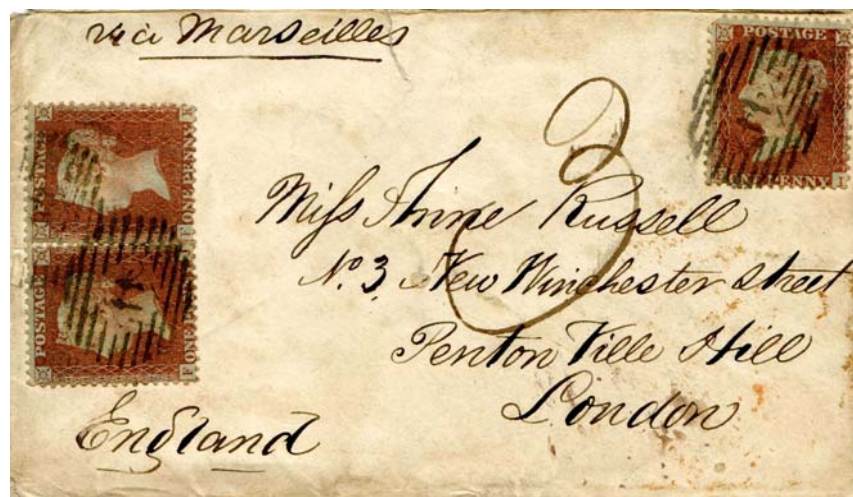 via Marseilles
POSTAGE
ONE PENNY
POSTAGE
ONE PENNY
POSTAGE
ONE PENNY
3
Miſs Anne Russell
No. 3, New Winchester Street
Penton Ville Hill
London
England